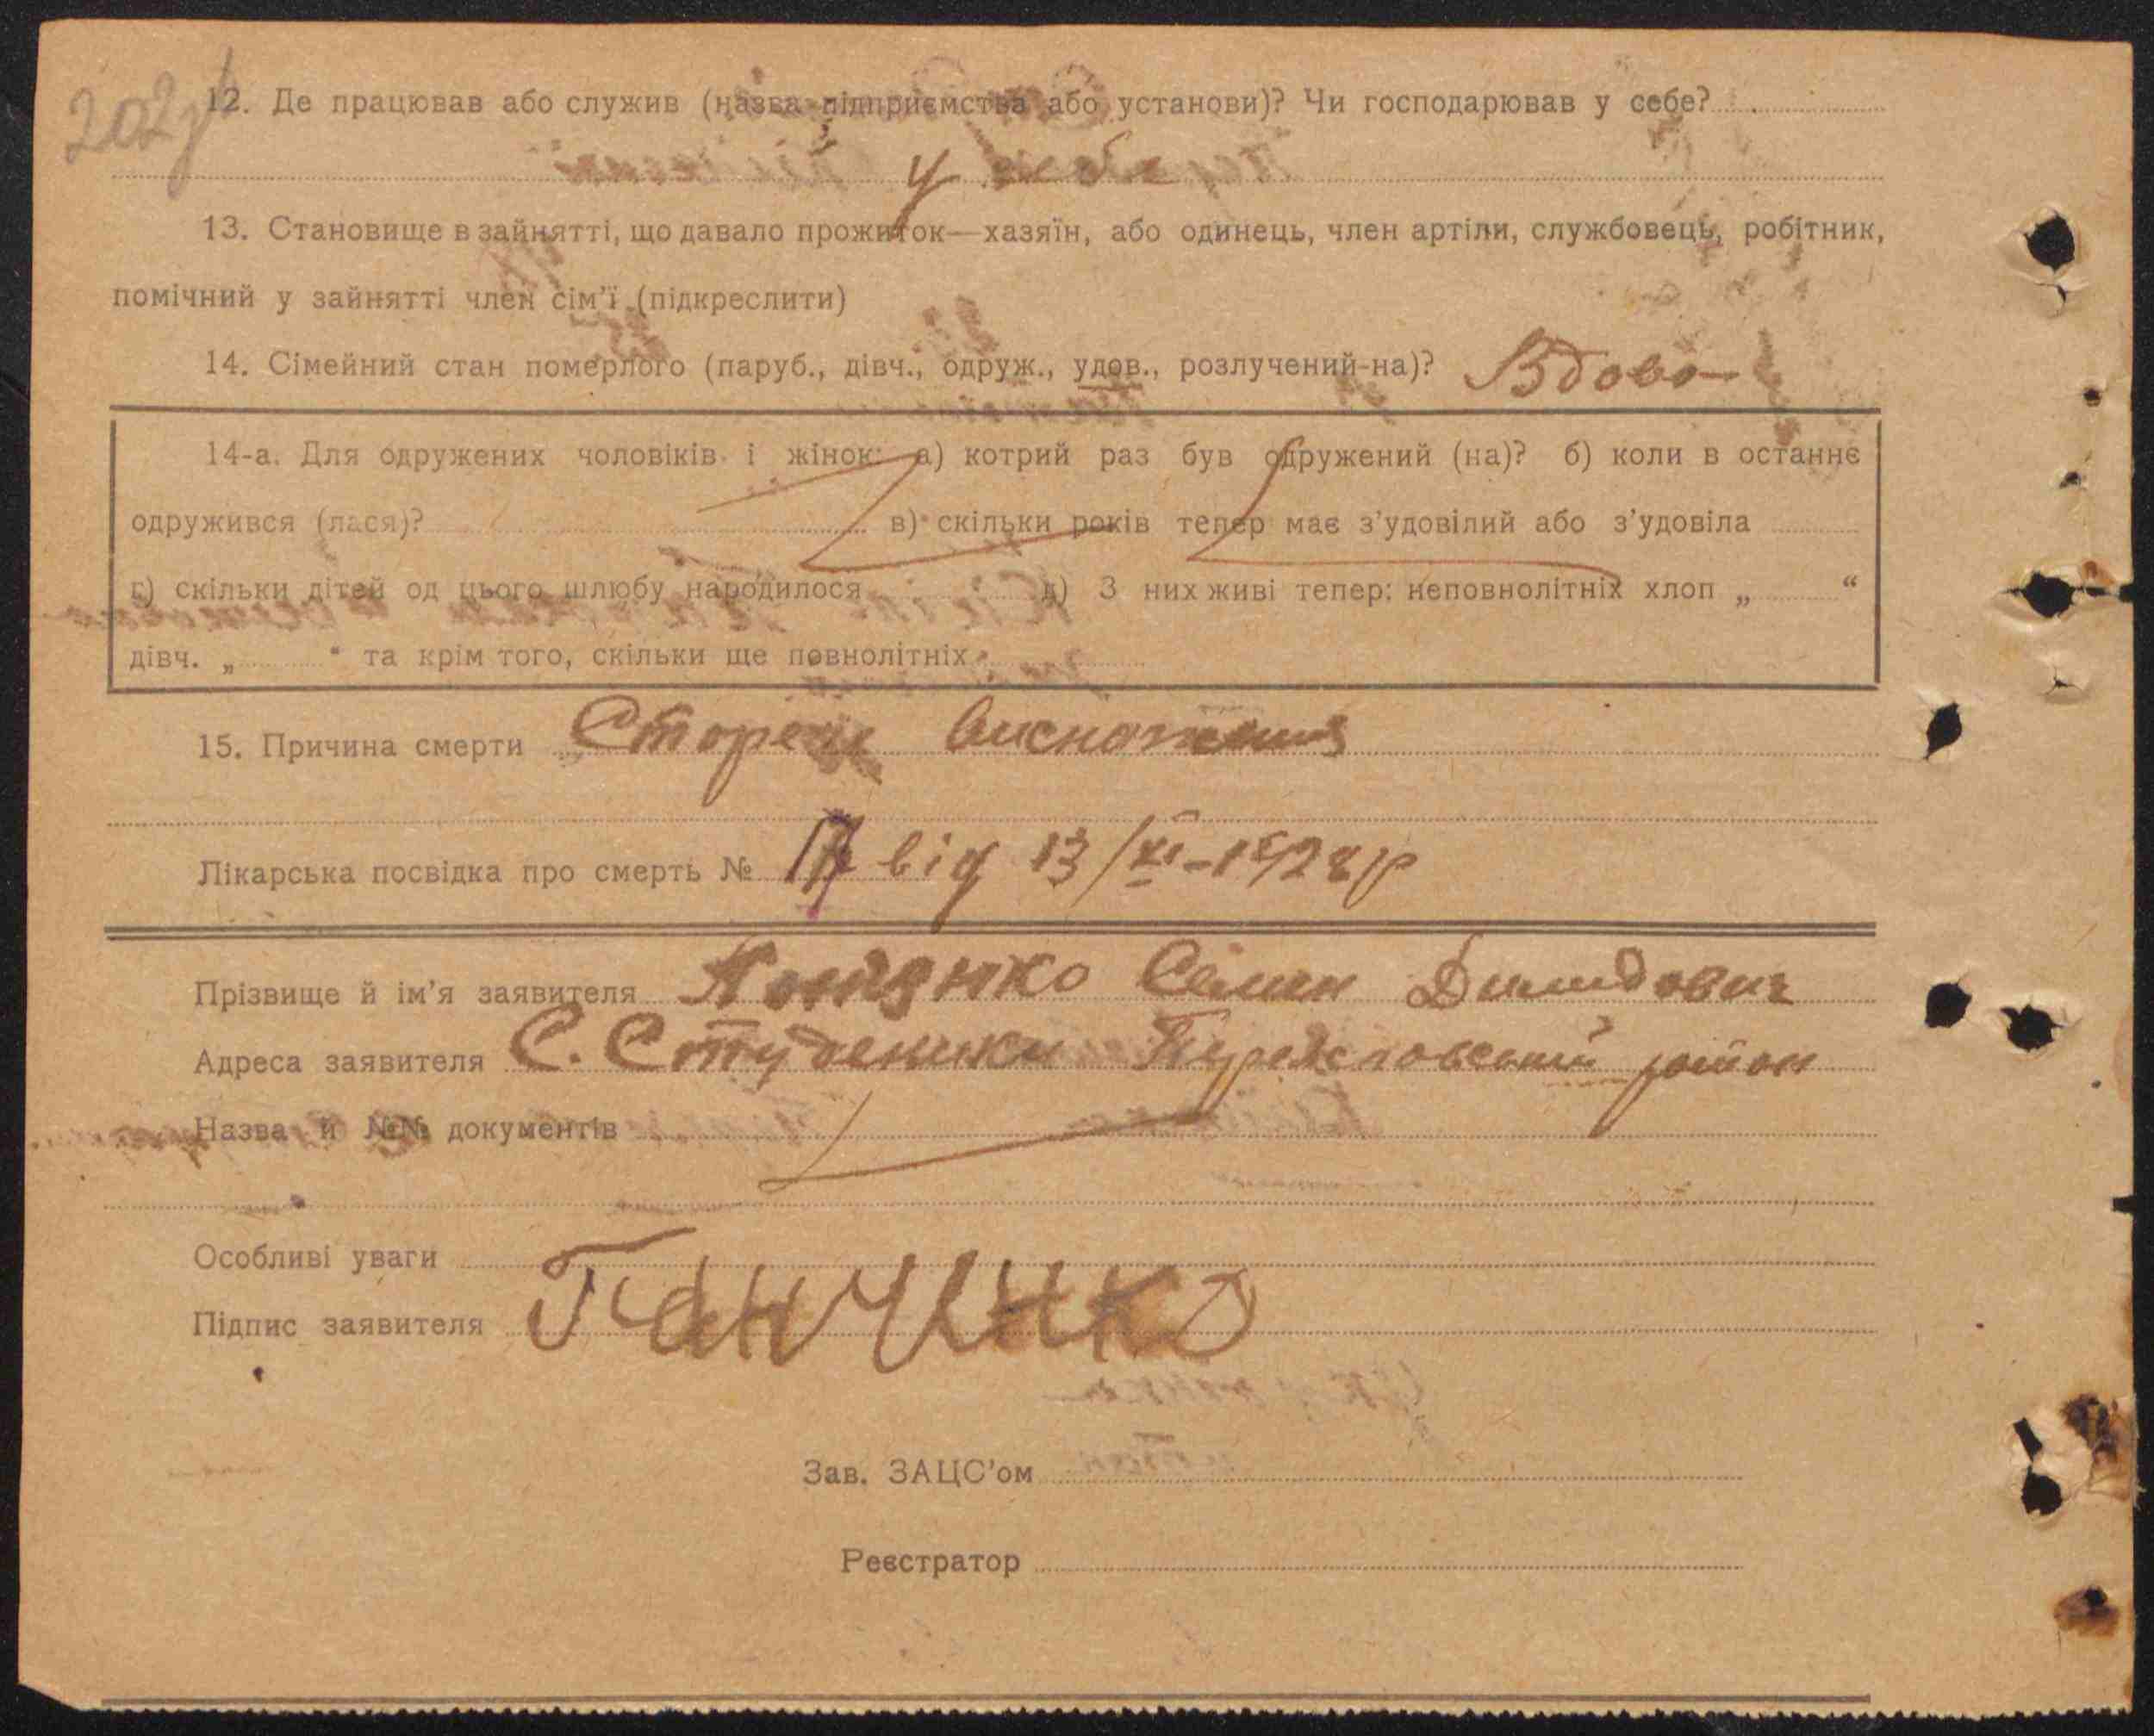 12. Де працював або служив (назва підприємства або установи)? Чи господарював у себе?
у себе
13. Становище в зайнятті, що давало прожиток—хазяїн, або одинець, член артіли, службовець, робітник,
помічний у зайнятті член сім'ї (підкреслити)
14. Сімейний стан померлого (паруб., дівч., одруж., удов., розлучений-на)? Вдова
14-а. Для одружених чоловіків і жінок: а) котрий раз був одружений (на)? б) коли в останнє
одружився (лася)? в) скільки років тепер має з'удовілий або з'удовіла
г) скільки дітей од цього шлюбу народилося д) З них живі тепер: неповнолітніх хлоп „ “
дівч. „ “ та крім того, скільки ще повнолітніх
15. Причина смерти Старече виснаження
Лікарська посвідка про смерть № 17 від 13/XI-1928р
Прізвище й ім'я заявителя Семен Димидович
Адреса заявителя С. Студеники район
Назва й №№ документів
Особливі уваги
Підпис заявителя Панченко
Зав. ЗАЦС'ом
Реєстратор